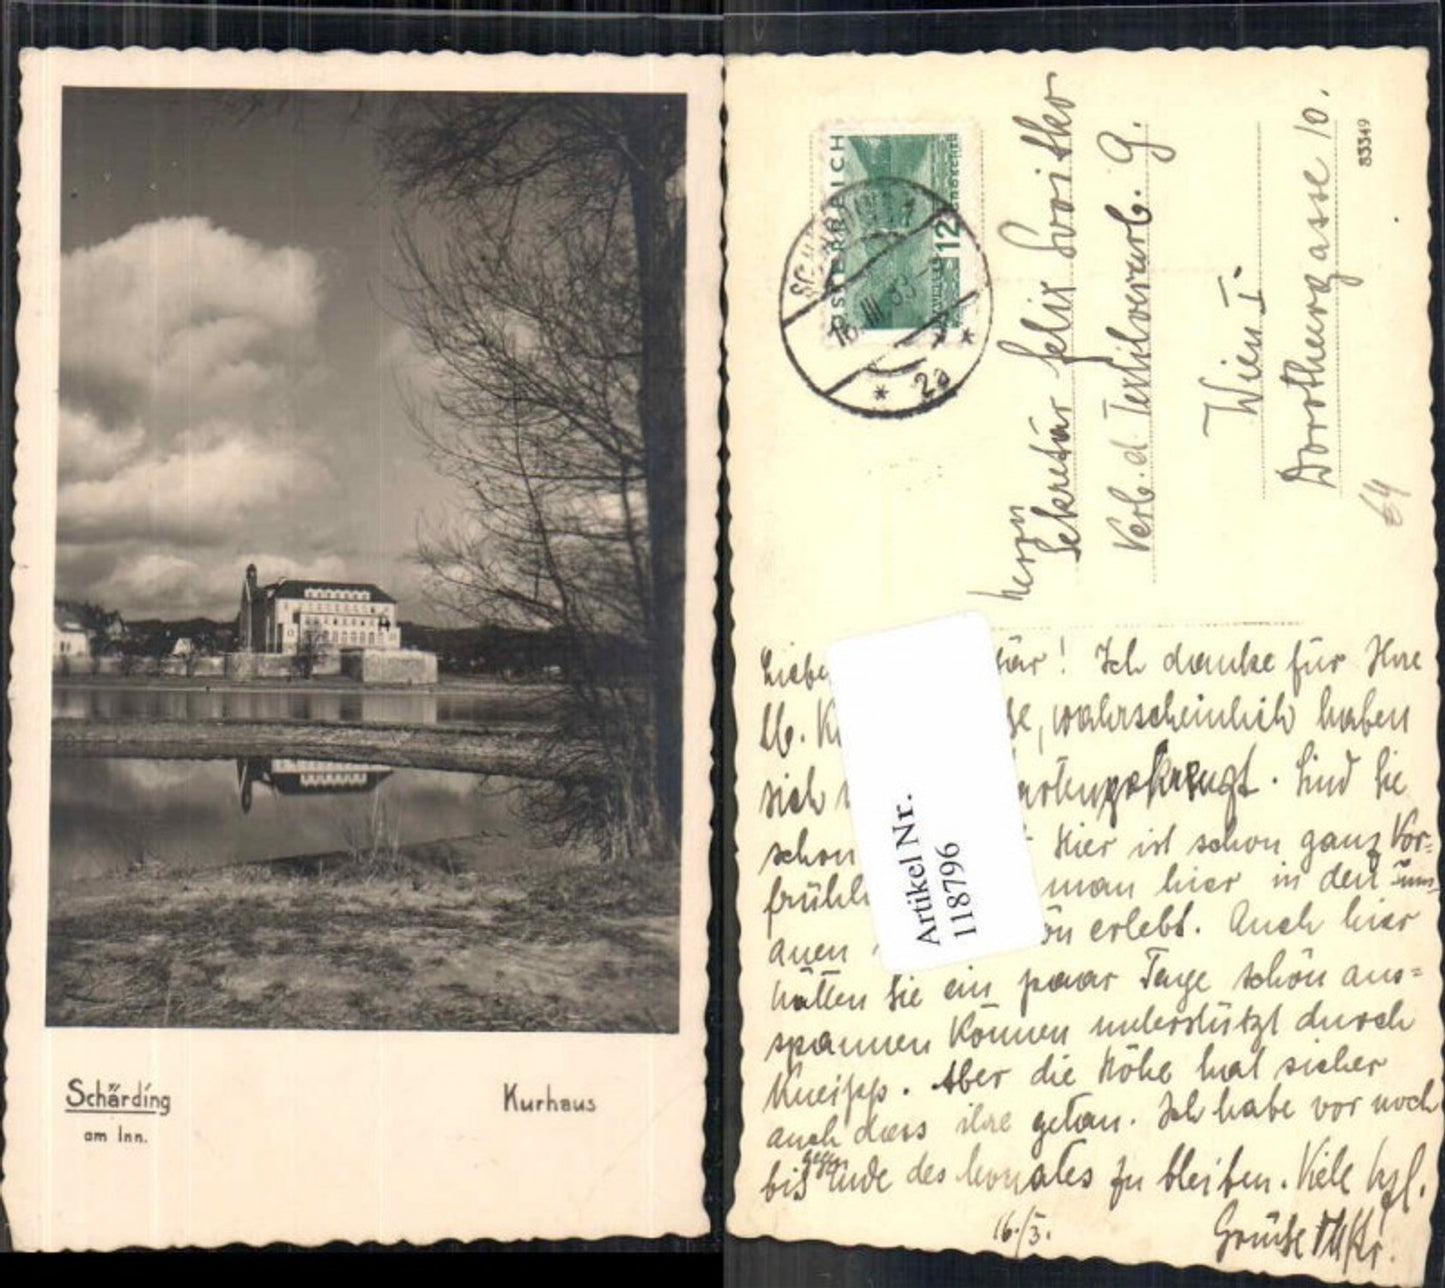 Schärding
am Inn.
Kurhaus
ÖSTERREICH
12
GROSCHEN
2a
Herrn
Sekretär Felix Svoitko
Verb. d. Textilverarb. G.
Wien I.
Dorotheergasse 10.
83349
64
Artikel Nr.
118796
är! Ich danke für Ihre
lb. wahrscheinlich haben
sich gekreuzt. Sind Sie
schon Hier ist schon ganz Vor=
frühl man hier in den Inn=
auen ön erlebt. Auch hier
hätten Sie ein paar Tage schön aus=
spannen können unterstützt durch
Kneipp. Aber die Höhe hat sicher
auch das ihre getan. Ich habe vor noch
bis gegen Ende des Monates zu bleiben. Viele hzl.
16./3. Grüße